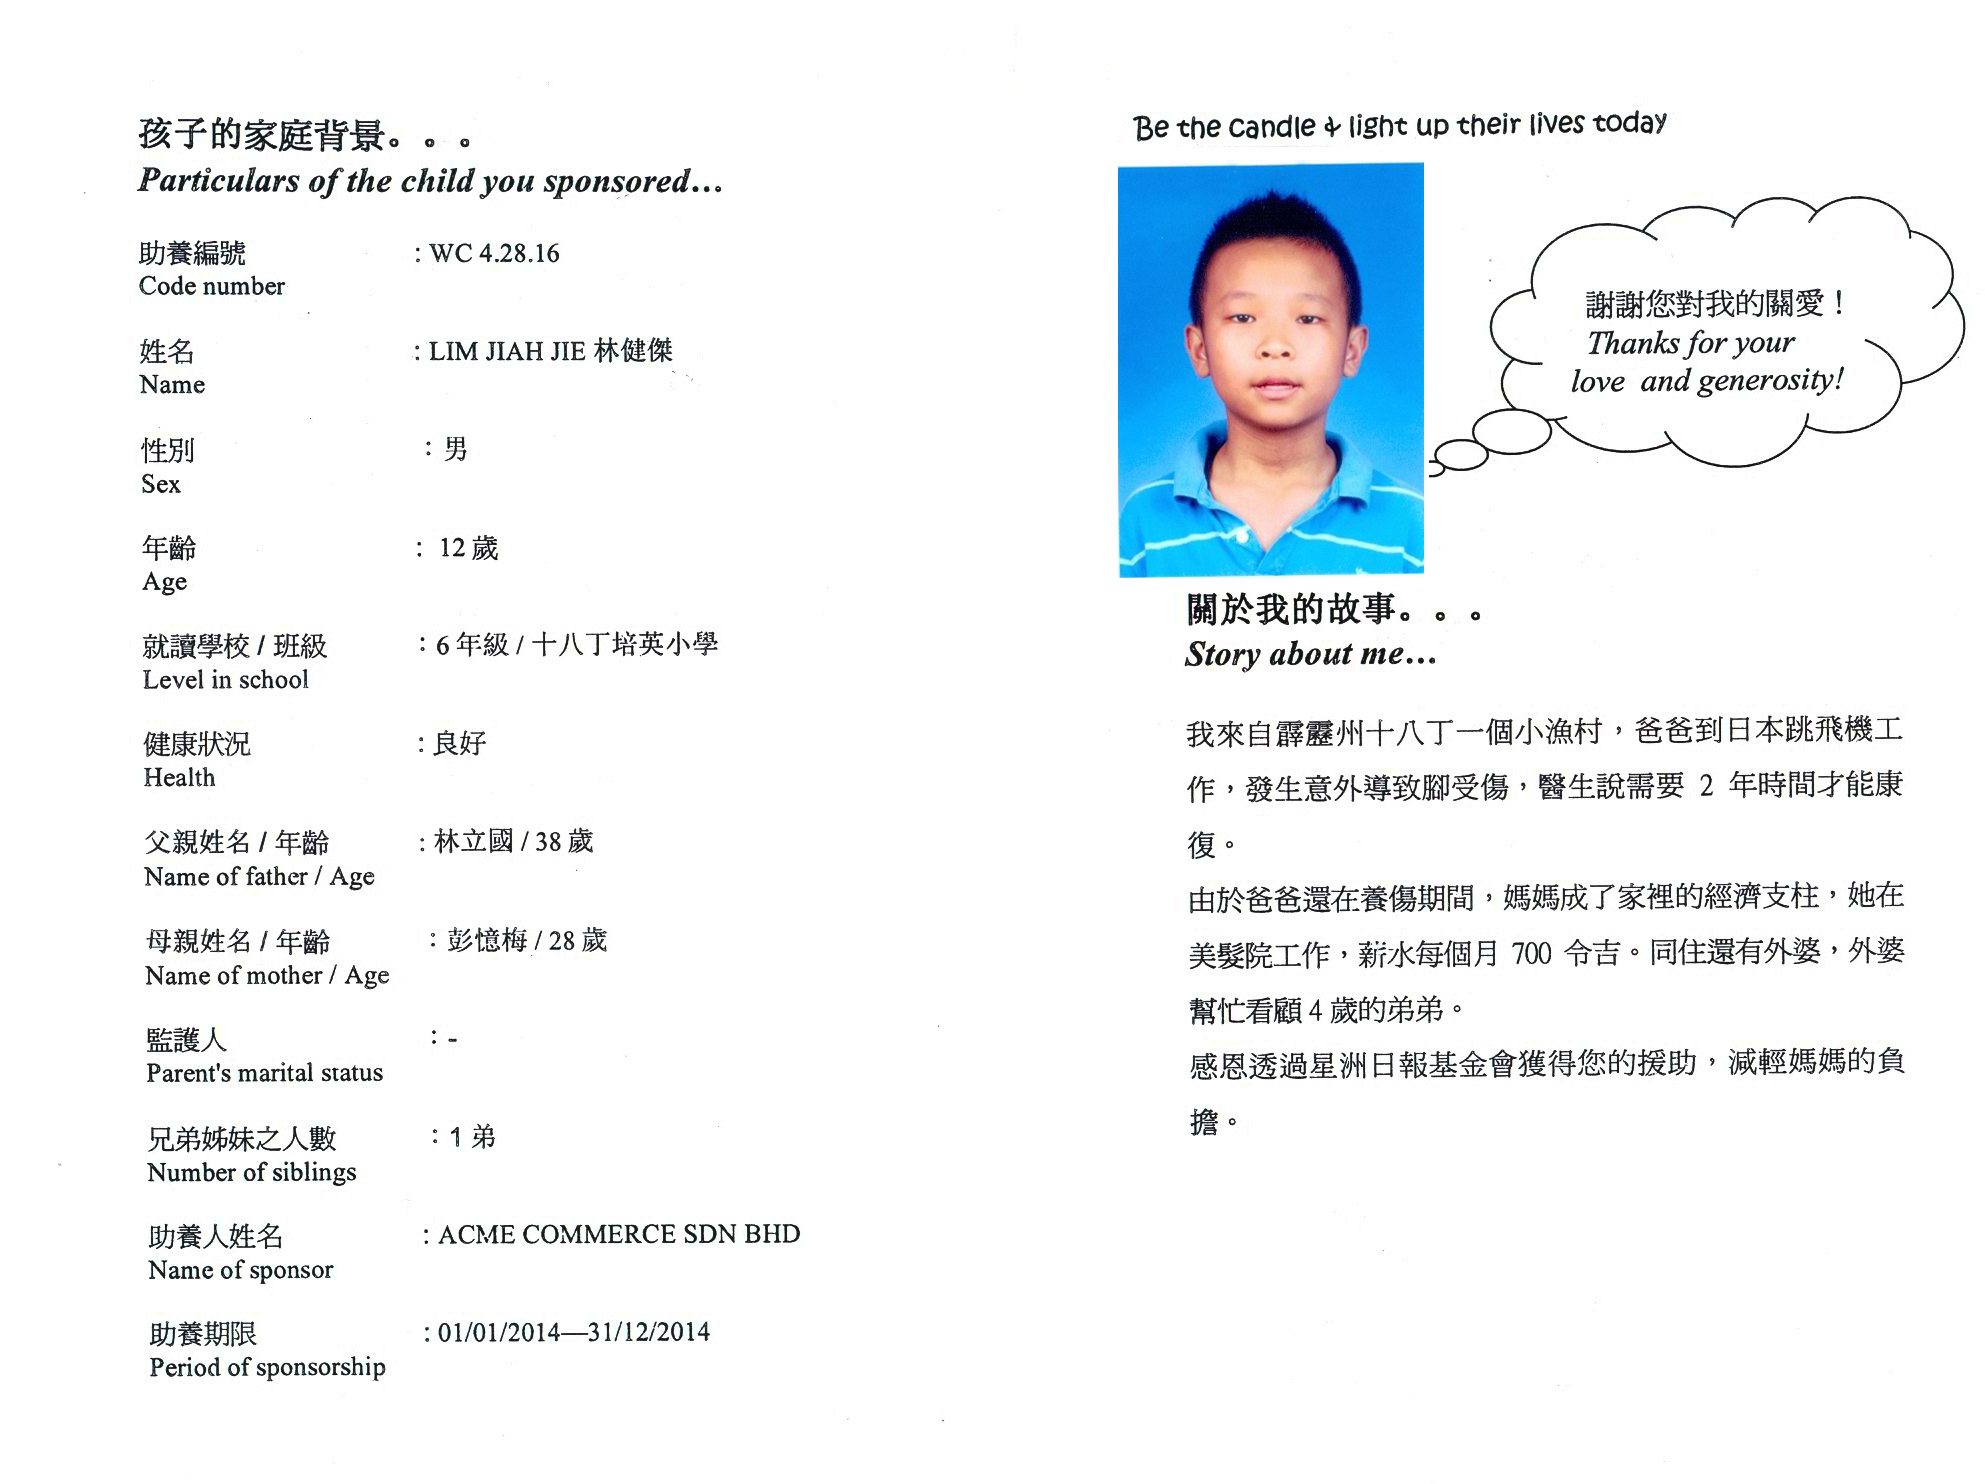 孩子的家庭背景。。。
Particulars of the child you sponsored...
助養編號 : WC 4.28.16
Code number
姓名 : LIM JIAH JIE 林健傑
Name
性別 : 男
Sex
年齡 : 12 歲
Age
就讀學校 / 班級 : 6 年級 / 十八丁培英小學
Level in school
健康狀況 : 良好
Health
父親姓名 / 年齡 : 林立國 / 38 歲
Name of father / Age
母親姓名 / 年齡 : 彭憶梅 / 28 歲
Name of mother / Age
監護人 : -
Parent's marital status
兄弟姊妹之人數 : 1 弟
Number of siblings
助養人姓名 : ACME COMMERCE SDN BHD
Name of sponsor
助養期限 : 01/01/2014—31/12/2014
Period of sponsorship
Be the candle & light up their lives today
謝謝您對我的關愛！
Thanks for your
love and generosity!
關於我的故事。。。
Story about me...
我來自霹靂州十八丁一個小漁村，爸爸到日本跳飛機工
作，發生意外導致腳受傷，醫生說需要 2 年時間才能康
復。
由於爸爸還在養傷期間，媽媽成了家裡的經濟支柱，她在
美髮院工作，薪水每個月 700 令吉。同住還有外婆，外婆
幫忙看顧 4 歲的弟弟。
感恩透過星洲日報基金會獲得您的援助，減輕媽媽的負
擔。